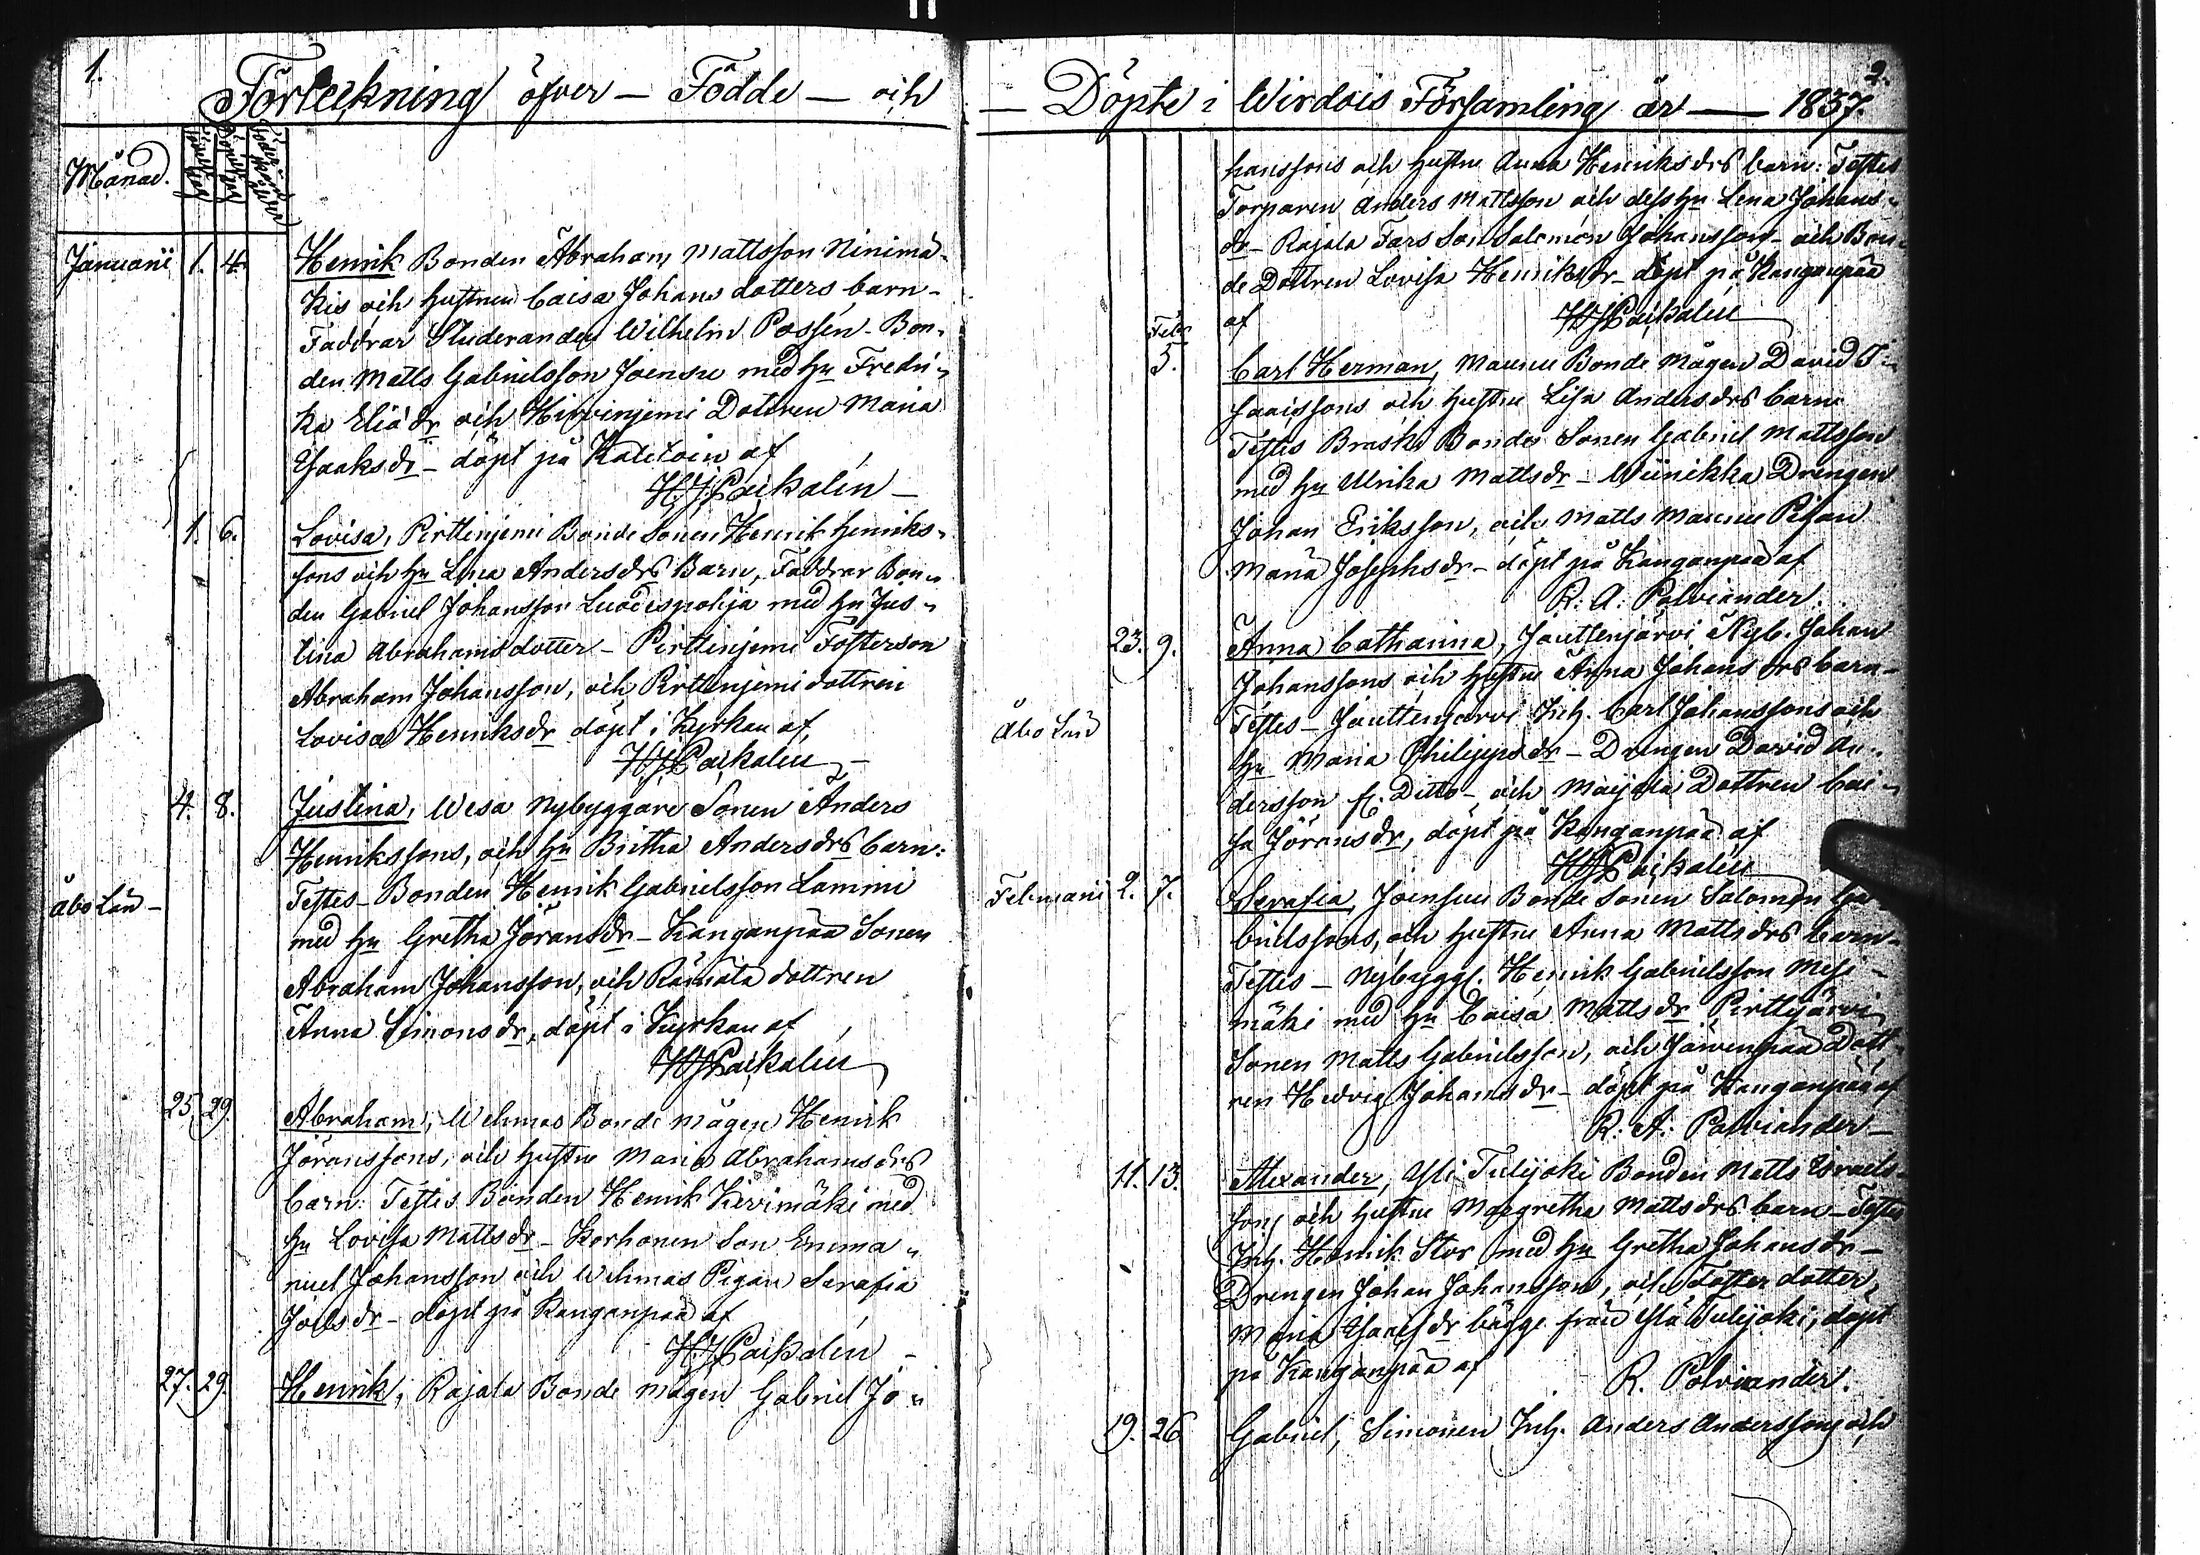 1.
Förteckning öfver — Födde — och
Månad.
Januarii 1. 4. Henrik Bonden Abraham Mattsson Ninimä-
kis och hustrun Caisa Johans dotters barn -
Faddrar Studeranden Wilhelm Possén - Bon-
den Matts Gabrielsson Joensu med hu Fredri-
ka Eliædr och Hirvinjemi Dottren Maria
Isaksdr - döpt på af
H.J. Paikalén -
1. 6. Lovisa, Pirttinjemi Bonde Sonen Henrik Henriks-
sons och hu Lena Andersdrs Barn, Faddrar Bon-
den Gabriel Johansson Luodespohja med hu Jus-
tina Abrahamsdotter - Pirttinjemi Fosterson
Abraham Johansson, och Pirttinjemi dottren
Lovisa Henriksdr döpt i Kyrkan af
HJPaikalén -
4. 8. Justina, Wesa Nybyggare Sonen Anders
Henrikssons, och hu Britha Andersdrs barn:
Testes - Bonden Henrik Gabrielsson Lammi
Åbo Län -
med hu Gretha Jöransdr - Kanganpää Sonen
Abraham Johansson, och dottren
Anna Simonsdr, döpt i Kyrkan af
HJPaikalén
25. 29. Abraham, Wehmas Bonde mågen Henrik
Jöranssons, och hustru Maria Abrahamsdrs
barn: Testes Bonden Henrik Kivimäki med
hu Lovisa Mattsdr - Korhonen Son Emma-
nuel Johansson och Wehmas Pigan Serafia
Joelsdr - döpt på Kanganpää af
HJPaikalén -
27. 29. Henrik, Rajala Bonde mågen Gabriel Jo-
2.
— Döpte i Wirdois Församling år — 1837.
hanssons och hustru Anna Henriksdrs barn: Testes
Torparen Anders Mattsson och dess hu Lena Johans-
dr - Rajala Fars Son Salomon Johansson - och Bon-
de Dottren Lovisa Henriksdr - döpt på Kanganpää
af HJPaikalén
Febr
5. Carl Herman, Maunu Bonde Mågen David I-
saacssons och hustru Lisa Andersdrs barn
Testes Braski Bonde Sonen Gabriel Mattsson
med hu Ulrika Mattsdr - Wiinikka Drengen
Johan Eriksson, och Matts Maunu Pigan
Maria Josephsdr - döpt på Kanganpää af
R: A: Polviander.
23. 9. Anna Catharina, Jäuttenjärvi Nyb. Johan
Johanssons och hustru Anna Johansdrs barn -
Testes - Jauttenjärvi Inh. Carl Johanssons och
Åbo Län
hu Maria Philippsdr - Drengen David An-
dersson fr. Ditto - och Maijala Dottren Cai-
sa Jöransdr, döpt på Kanganpää af
HJPaikalén
Februarii 2. 7. Serafia, Joensuu Bonde Sonen Salomon Ga-
brielssons, och hustru Anna Mattsdrs barn -
Testes - Nybyggr. Henrik Gabrielsson Mesi-
mäki med hu Caisa Mattsdr Pirttijärvi
Sonen Matts Gabrielsson, och Järvenpää Dott-
ren Hedvig Johansdr - döpt på Kanganpää af
R: A: Polviander -
11. 13. Alexander, Yli Tulijoki Bonden Matts Israels-
sons och hustru Margretha Mattsdrs barn - Testes
Inh. Henrik Stor med hu Gretha Johansdr -
Drengen Johan Johansson, och Foster dotter
Maria Isacsdr bägge från Yli Tulijoki, döpt
på Kanganpää af R. Polviander.
19. 26 Gabriel, Simonen Inh. Anders Anderssons och